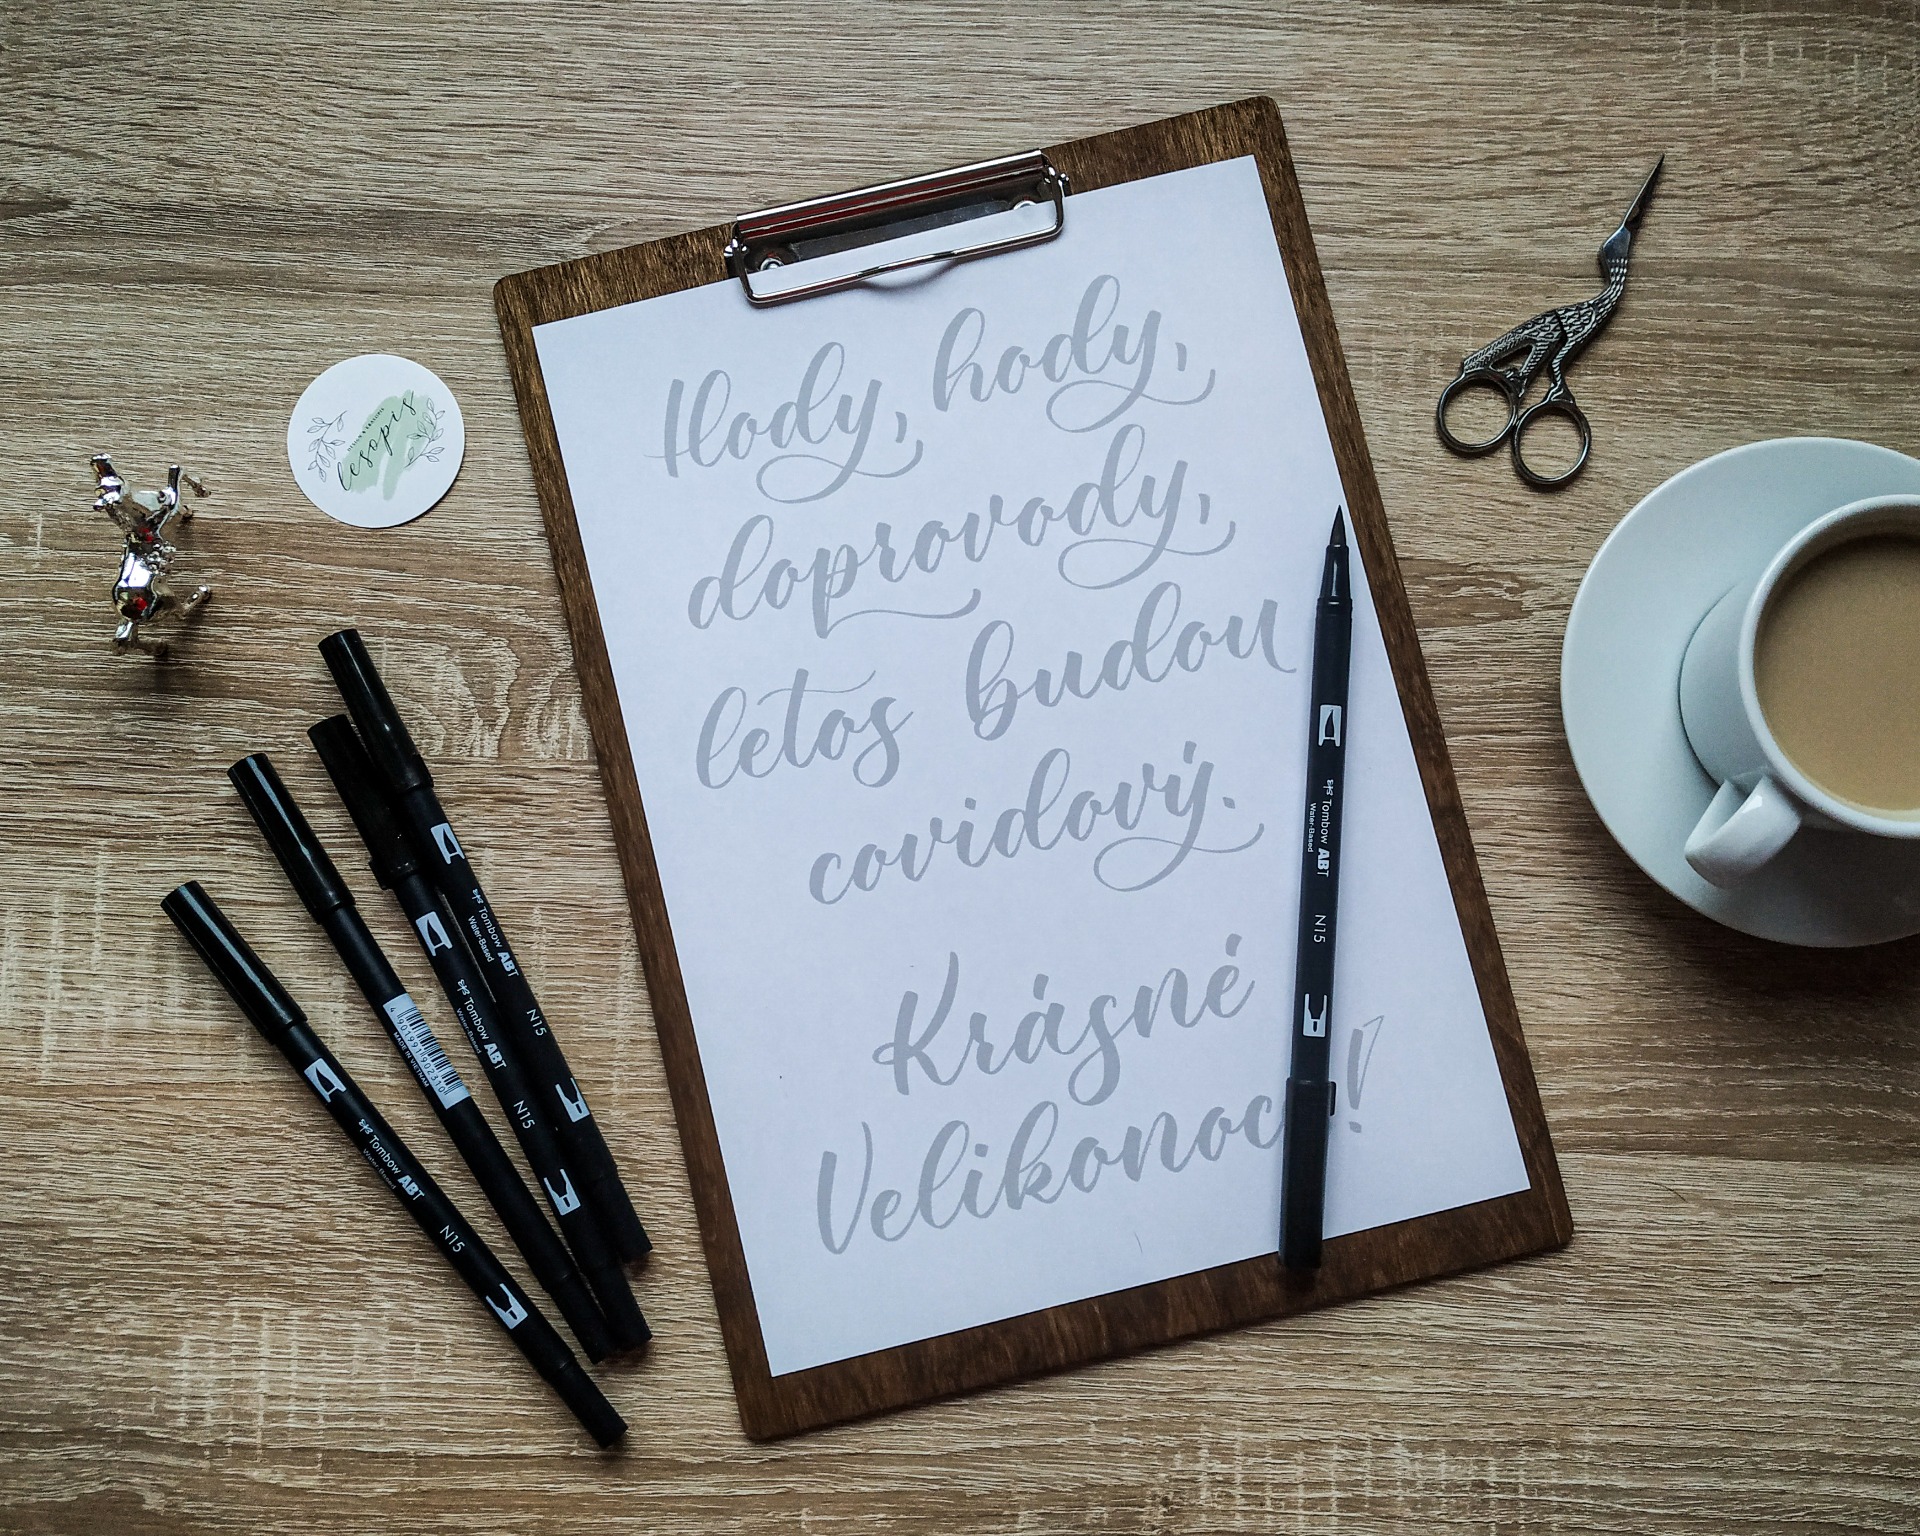 Hody, hody,
doprovody,
letos budou
covidový.
Krásné
Velikonoc !
lesopis
Tombow ABT
Water-Based
N15
Tombow ABT
Water-Based
N15
Tombow ABT
Water-Based
N15
4 901991 902310
MADE IN VIETNAM
Tombow ABT
Water-Based
N15